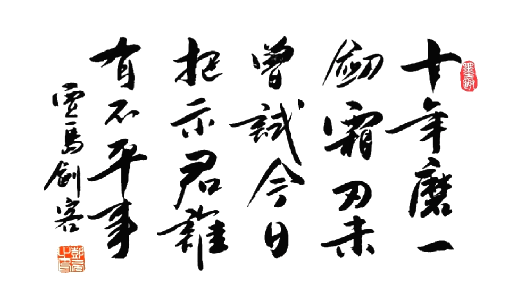 十年磨一
劍霜刃未
曾試今日
把示君誰
有不平事
賈島劍客